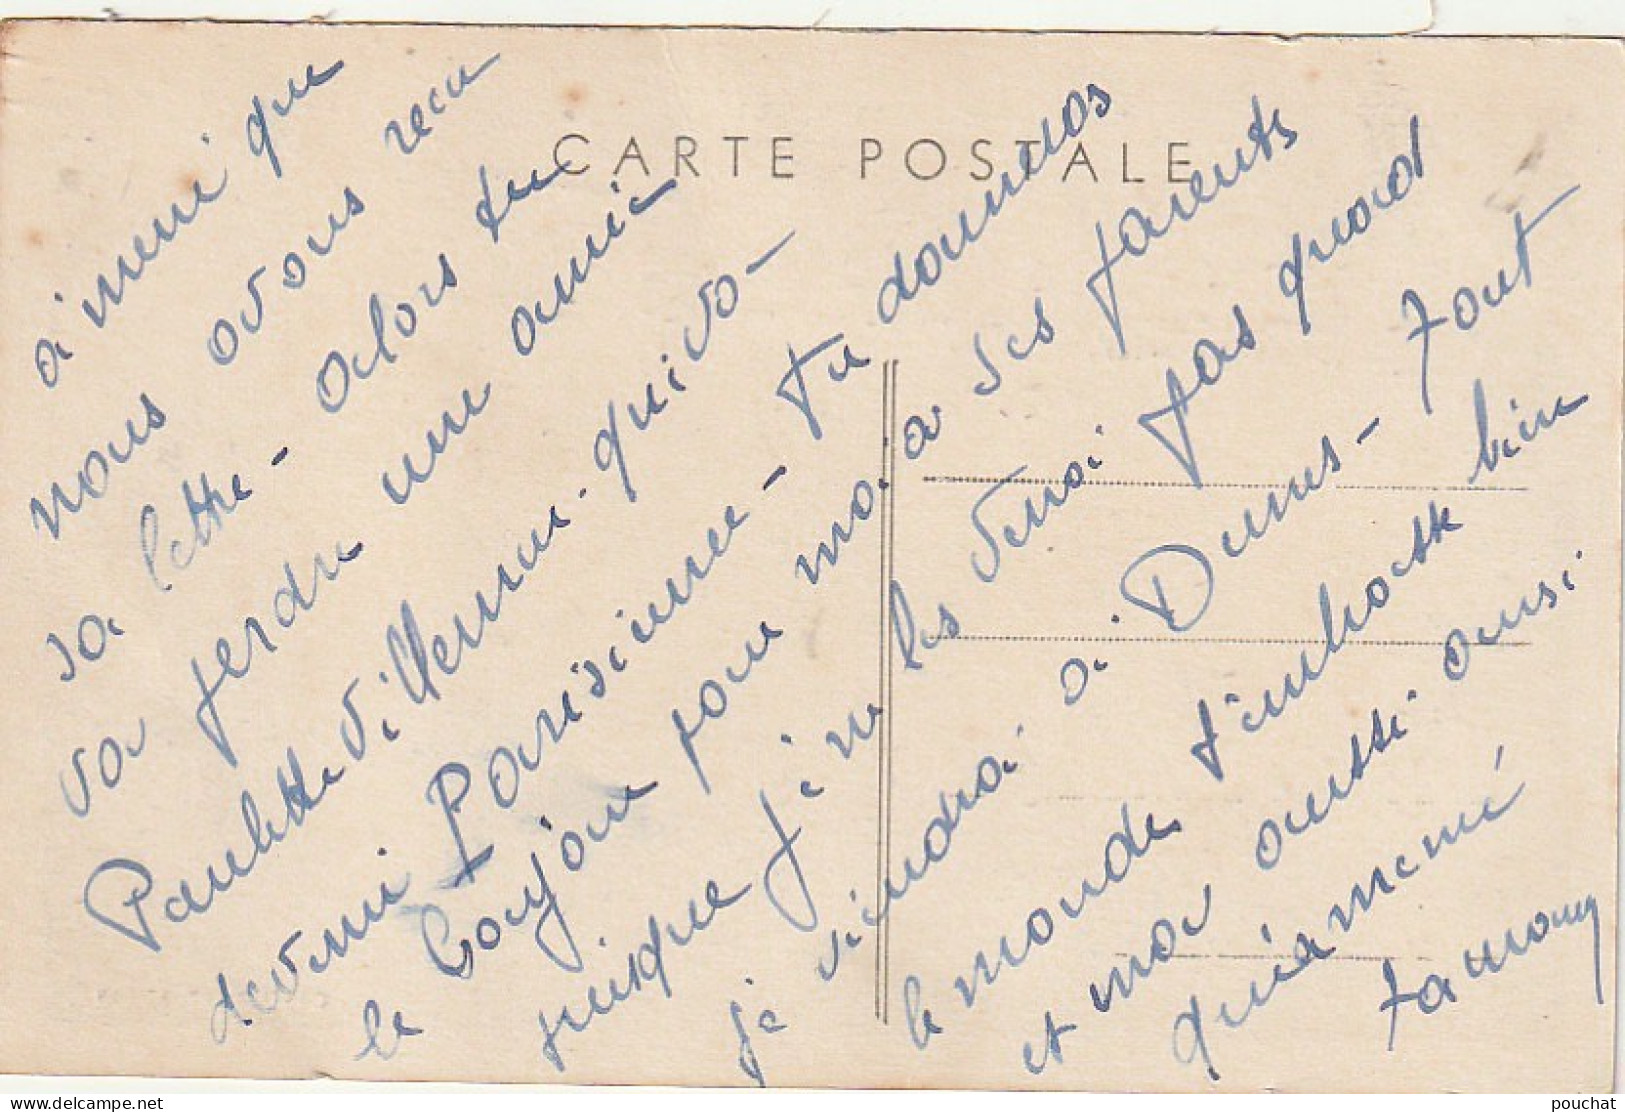 CARTE POSTALE
a'meni que
nous avons recu
sa lettre - alors tu
va perdre une amie
Paulette Villemin - qui va -
devenir Parisienne - tu donneras
le Bonjour pour moi a ses parents
puisque je ne les verrai pas quand
je viendrai a Dunes - Tout
le monde t'embrasse bien
et moi aussi - ainsi
qu'a mémé
ta mamy
pouchat